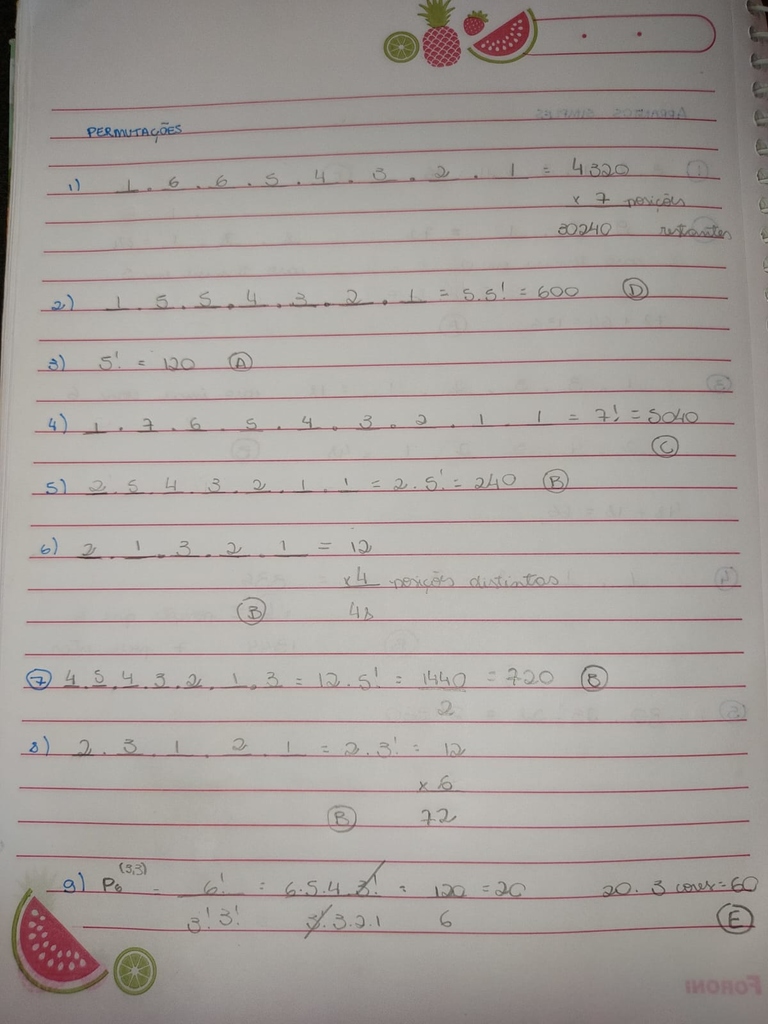 PERMUTAÇÕES
1) 1 . 6 . 6 . 5 . 4 . 3 . 2 . 1 = 4320
x 7 posições
30240 restantes
2) 1 . 5 . 5 . 4 . 3 . 2 . 1 = 5.5! = 600 D
3) 5! = 120 A
4) 1 . 7 . 6 . 5 . 4 . 3 . 2 . 1 . 1 = 7! = 5040
C
5) 2 . 5 . 4 . 3 . 2 . 1 . 1 = 2 . 5! = 240 B
6) 2 . 1 . 3 . 2 . 1 = 12
x 4 posições distintas
B 48
7 4 . 5 . 4 . 3 . 2 . 1 . 3 = 12 . 5! = 1440 = 720 B
2
8) 2 . 3 . 1 . 2 . 1 = 2 . 3! = 12
x 6
B 72
9) P6 (3,3) = 6! = 6.5.4.3! = 120 = 20 20 . 3 cores = 60
3! 3! 3!.3.2.1 6 E